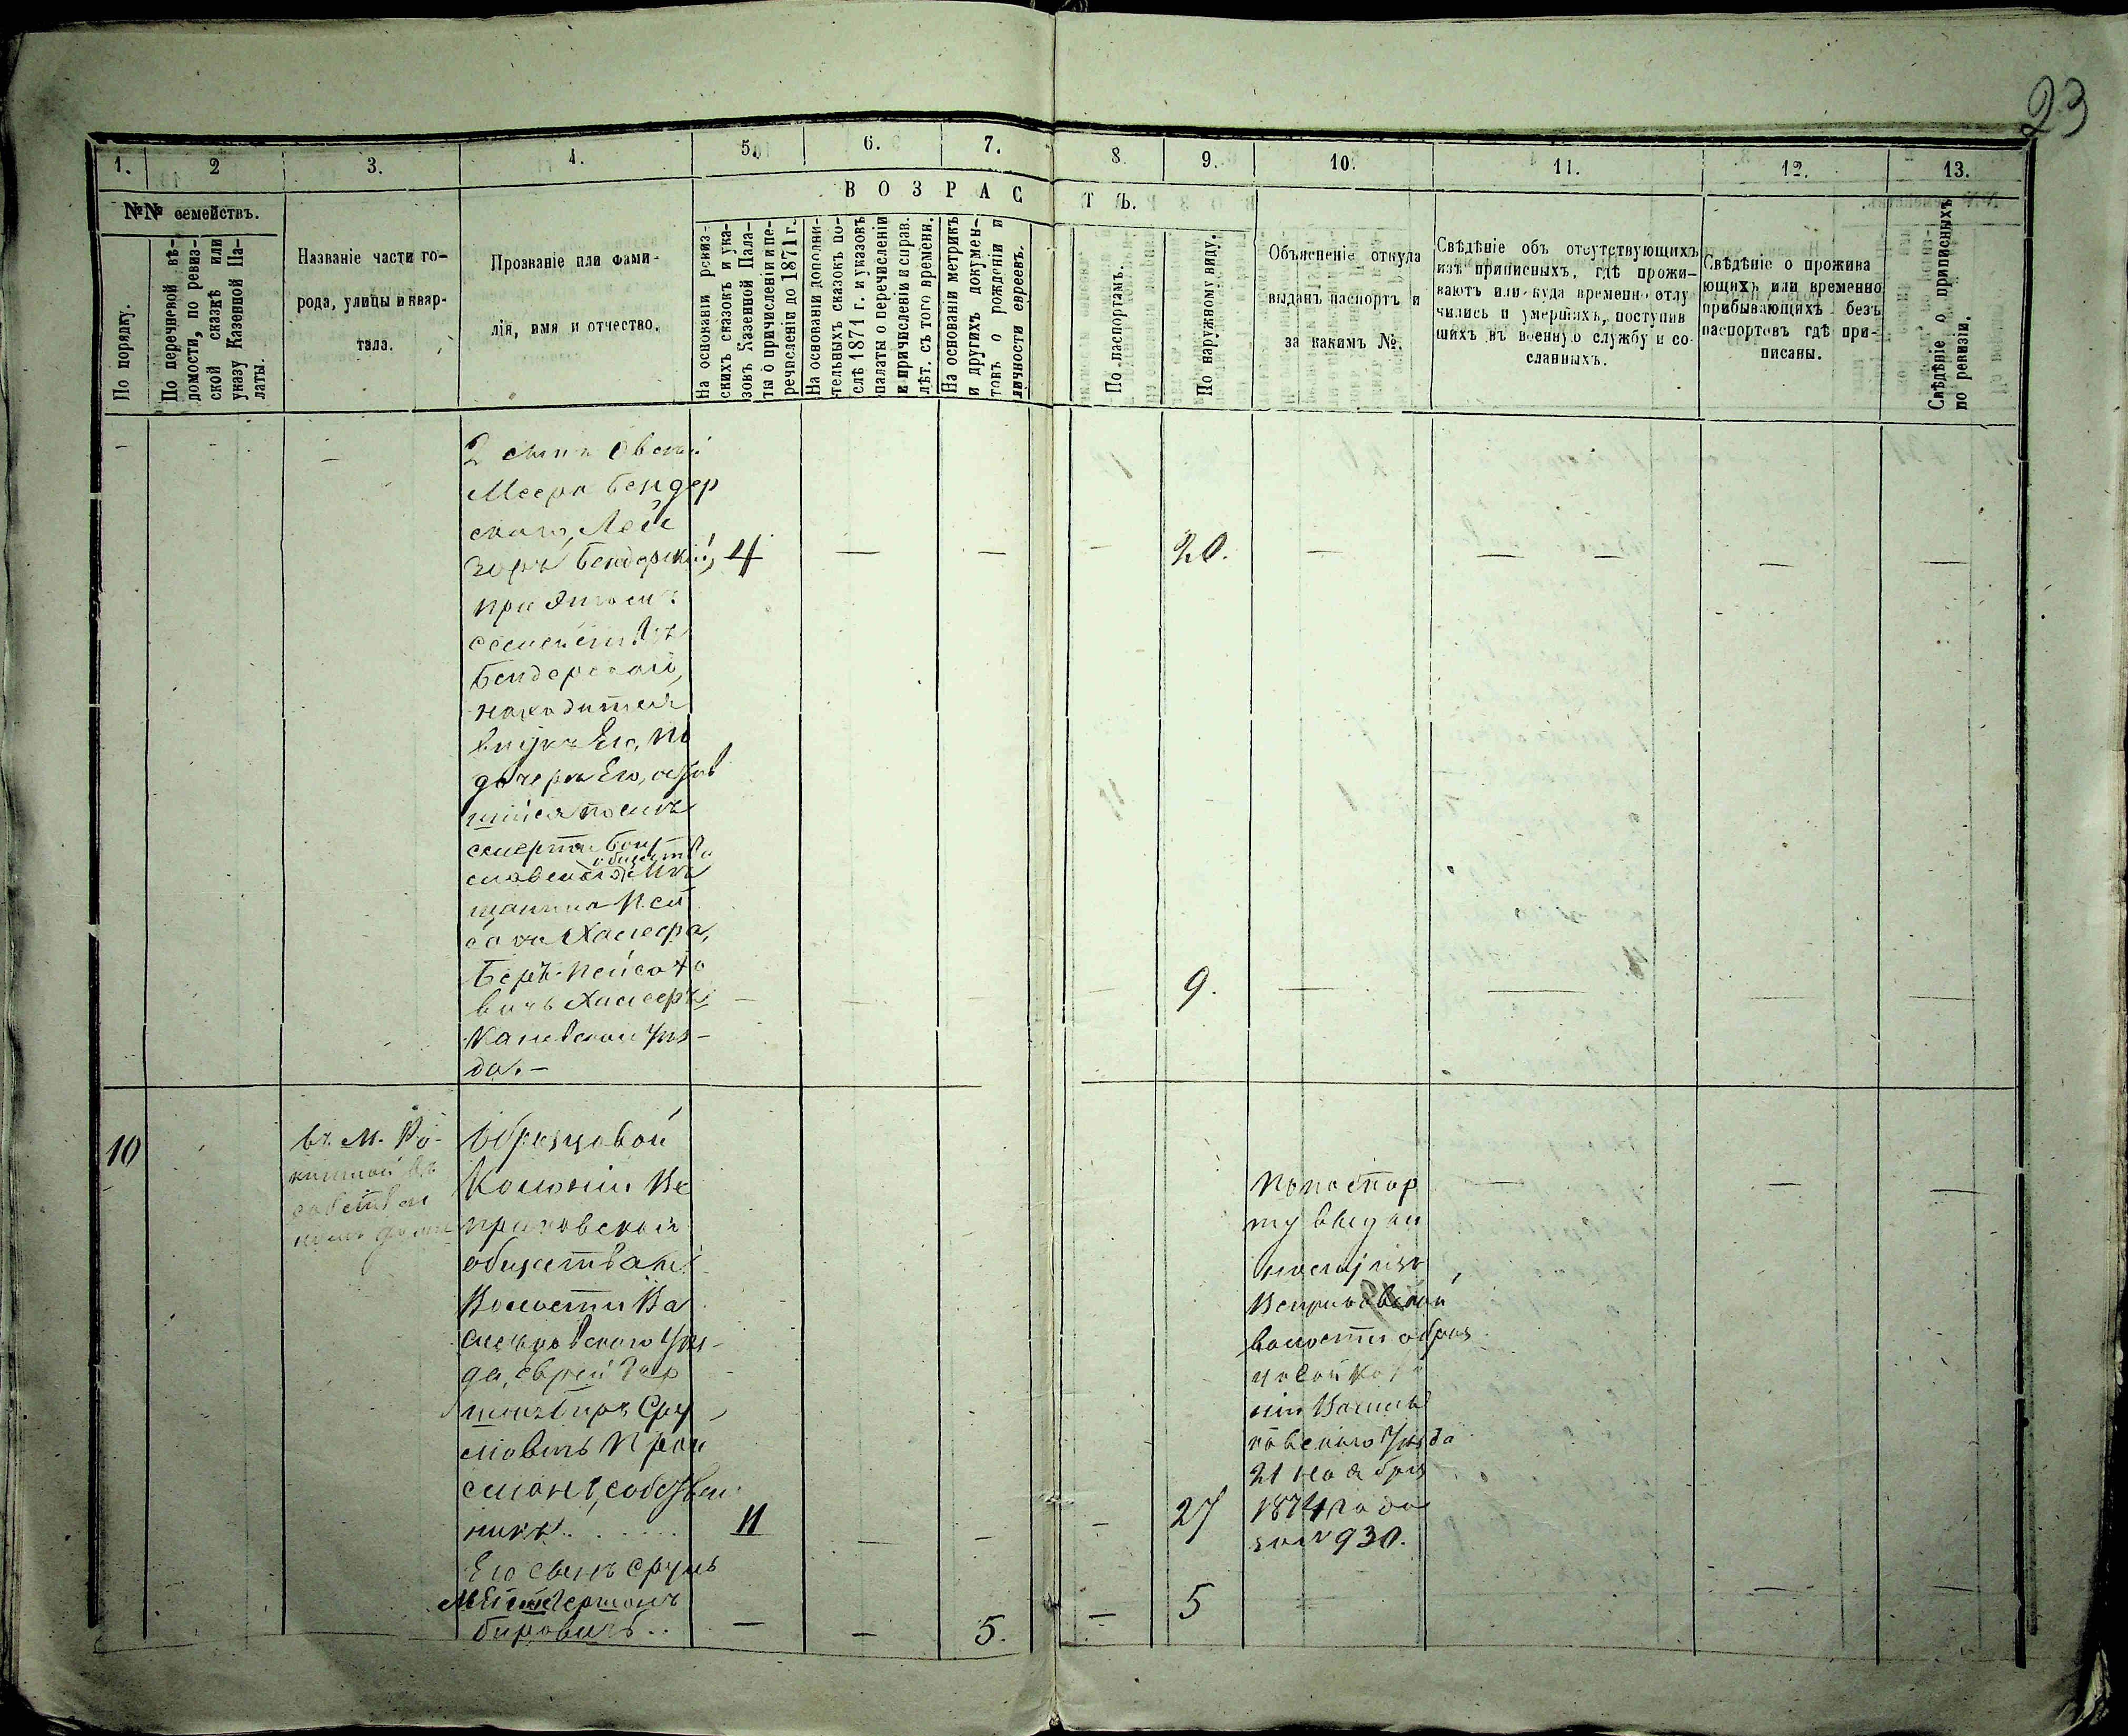 23
1. 2 3. 4. 5. 6. 7. 8. 9. 10. 11. 12. 13.
№№ семействъ.
ВОЗРАСТЪ.
По порядку.
По перечневой вѣ-
домости, по ревиз-
ской сказкѣ или
указу Казенной Па-
латы.
Названіе части го-
рода, улицы и квар-
тала.
Прозваніе или фами-
лія, имя и отчество.
На основаніи ревиз-
скихъ сказокъ и ука-
зовъ Казенной Пала-
ты о причисленіи и пе-
речисленіи до 1871 г.
На основаніи дополни-
тельныхъ сказокъ по-
слѣ 1871 г. и указовъ
палаты о перечисленіи
и причисленіи и справ.
лѣт. съ того времени.
На основаніи метрикъ
и другихъ докумен-
товъ о рожденіи и
личности евреевъ.
По паспортамъ.
По наружному виду.
Объясненіе откуда
выданъ паспортъ и
за какимъ №.
Свѣдѣніе объ отсутствующихъ
изъ приписныхъ, гдѣ прожи-
ваютъ или куда временно отлу
чились и умершихъ, поступив
шихъ въ военную службу и со-
сланныхъ.
Свѣдѣніе о прожива
ющихъ или временно
прибывающихъ безъ
паспортовъ гдѣ при-
писаны.
Свѣдѣніе о приписныхъ
по ревизіи.
2 сынъ
Меера Бендер
скаго, Лей
зоръ Бендерскій, 4 — — — 20. — — — — —
при этомъ
семействѣ
Бендерскій,
находится
внукъ Его, по
дочери Его, остав
шійся послѣ
смерти Богу
славскаго общества мѣ
щанина Пей
саха Хамера,
Беръ Пейсахо
вичъ Хамеръ — — — 9. — — — —
Каневскаго Уѣз-
да. —
10
въ м. Ро-
китной въ
собствен
номъ домѣ
Образцовой
Колоніи Ве
приковской
общества
Волости Ва
сильковскаго Уѣз-
да, еврей Гер
шонъ Сру
левичъ
собствен
никъ . . . . . 11 — — — 27
Его сынъ Сруль
Гершонъ
— — 5. — 5 — — —
По паспор
ту выдан
ному изъ
Веприковской
волости образ
цовой коло
ніи Василь
ковскаго Уѣзда
21 Ноября
1874 года
за № 930.